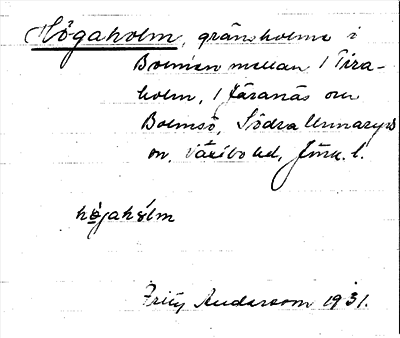 Högaholm, gränsholme i
Bolmen mellan 1 Tira-
holm, 1 Färanäs om
Bolmsö, Södra Unnaryds
sn, Västbo hd, Jönk. l.
högahölm
Fritz Andersson 1931.